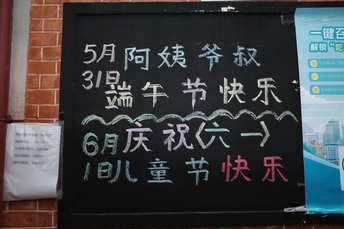 5月 阿姨爷叔
31日 端午节快乐
6月庆祝《六一》
1日儿童节快乐
一键召
解锁"吃